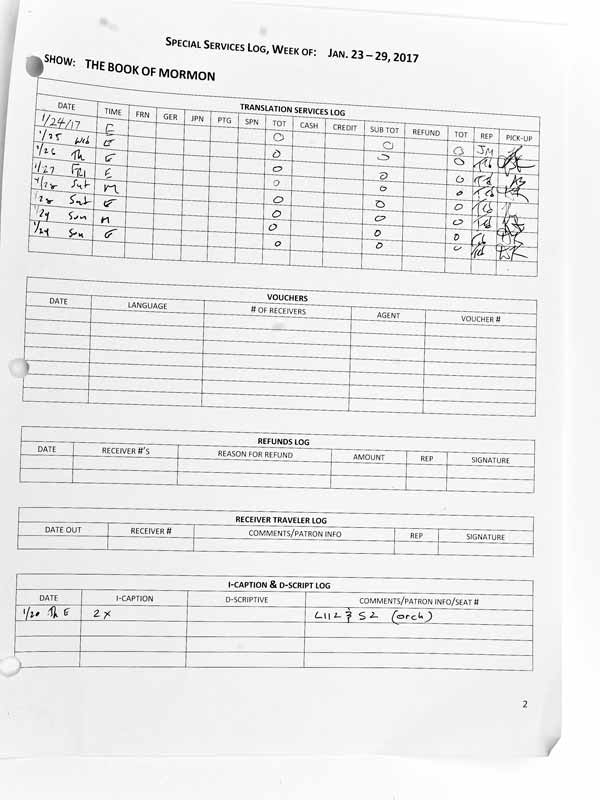 SPECIAL SERVICES LOG, WEEK OF: JAN. 23 – 29, 2017
SHOW: THE BOOK OF MORMON
TRANSLATION SERVICES LOG
DATE TIME FRN GER JPN PTG SPN TOT CASH CREDIT SUB TOT REFUND TOT REP PICK-UP
1/24/17 E 0 0 0 JM
1/25 Wed E 0 0 0
1/26 Th E 0 0 0
1/27 FRI E 0 0 0
1/28 Sat M 0 0 0
1/28 Sat E 0 0 0
1/29 Sun M 0 0 0
1/29 Sun E 0 0 0
VOUCHERS
DATE LANGUAGE # OF RECEIVERS AGENT VOUCHER #
REFUNDS LOG
DATE RECEIVER #'S REASON FOR REFUND AMOUNT REP SIGNATURE
RECEIVER TRAVELER LOG
DATE OUT RECEIVER # COMMENTS/PATRON INFO REP SIGNATURE
I-CAPTION & D-SCRIPT LOG
DATE I-CAPTION D-SCRIPTIVE COMMENTS/PATRON INFO/SEAT #
Th E 2x L112 & S2 (orch)
2